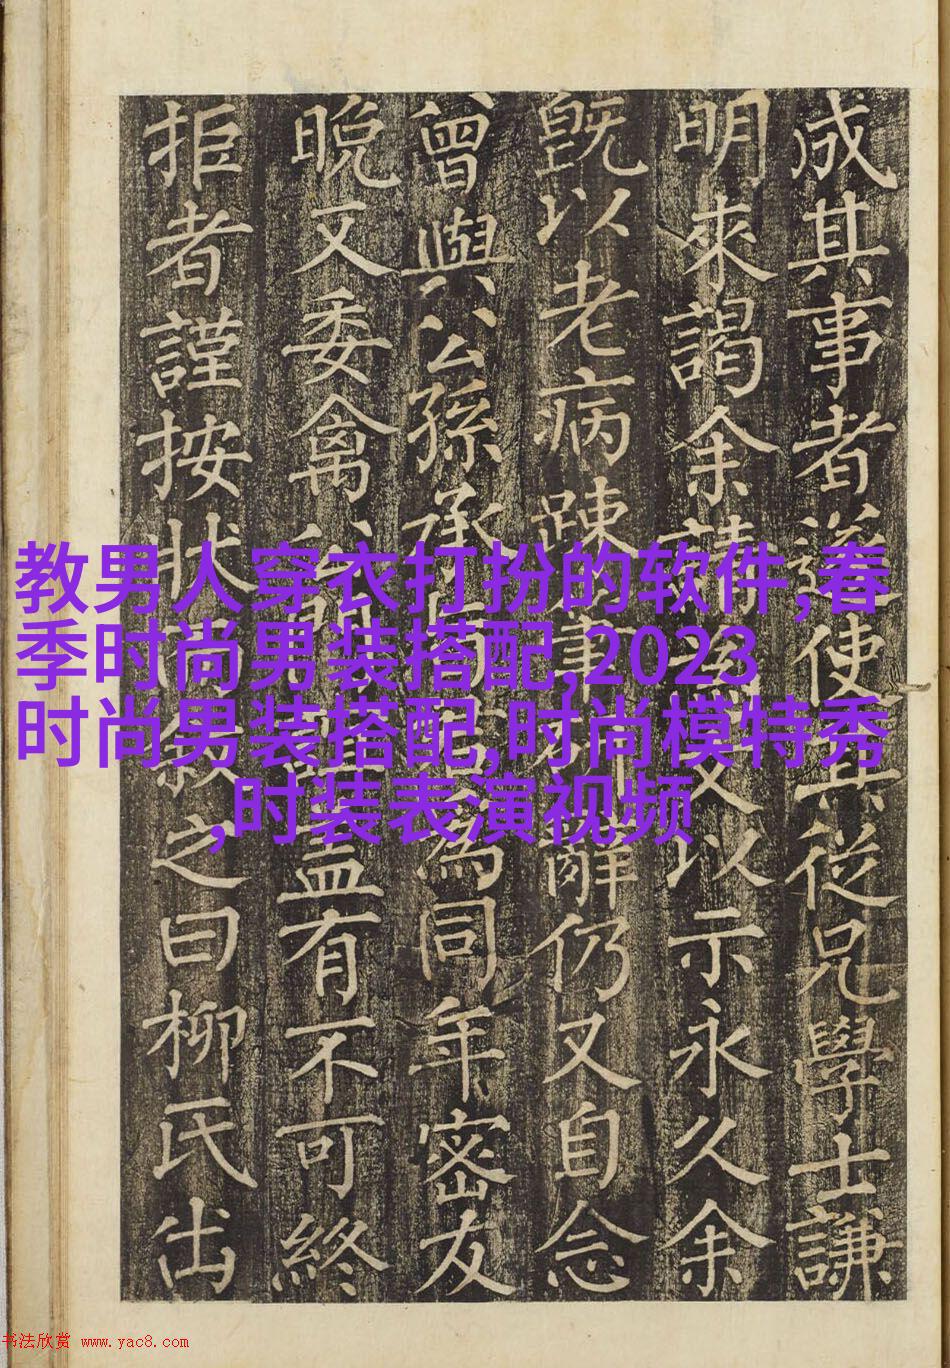 成其事者遂使其從兄學士謙
明來謁余請文以示永久余
旣以老病踈事辭仍又自念
曾與公孫承為同年密友
晚又委禽盖有不可終
拒者謹按狀而敘之曰柳氏出
教男人穿衣打扮的软件,春
季时尚男装搭配,2023
时尚男装搭配,时尚模特秀
,时装表演视频
书法欣赏 www.yac8.com